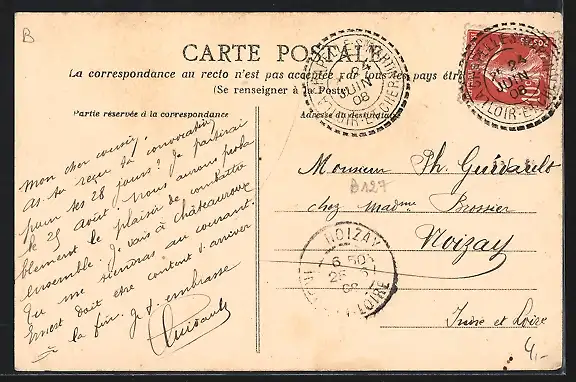 B
CARTE POSTALE
La correspondance au recto n'est pas acceptée par tous les pays étrangers
(Se renseigner à la Poste)
Partie réservée à la correspondance
Adresse du destinataire
Mon cher cousin,
As-tu reçu ta convocation
pour tes 28 jours? Je partirai
le 25 août. Nous aurons proba
blement le plaisir de combattre
ensemble. Je vais à châteauroux
Tu me tiendras au courant.
Ernest doit être content d'arriver
à la fin. Je t'embrasse
Guérault
Monsieur Ph. Guérault
D127
chez Madme Brossier
Noizay
Indre et Loire
4,-
24
JUIN
08
LOIR-ET-CHER
24
JUIN
08
LOIR-ET-CHER
10
NOIZAY
08